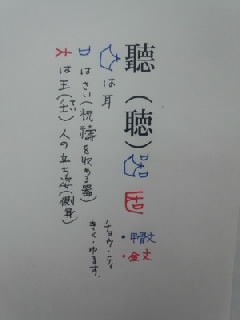 聽（聴）
・甲骨文
・金文
チョウ・テイ
きく・ゆるす
は耳
口はさい（祝禱を収める器）
は王（壬）人の立ち姿（側身）